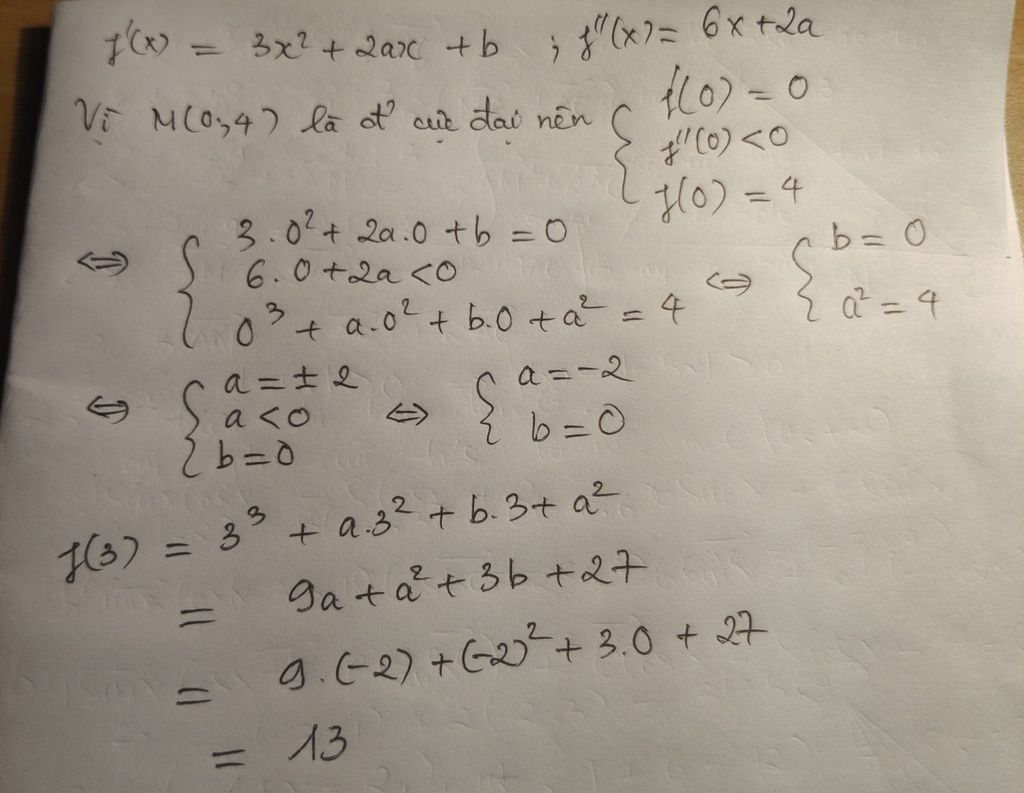 f'(x) = 3x² + 2ax + b ; f''(x) = 6x + 2a
Vì M(0;4) là đ' cực đại nên { f'(0) = 0
f''(0) < 0
f(0) = 4
⇔ { 3.0² + 2a.0 + b = 0
6.0 + 2a < 0
0³ + a.0² + b.0 + a² = 4
⇔ { b = 0
a² = 4
⇔ { a = ± 2
a < 0
b = 0
⇔ { a = -2
b = 0
f(3) = 3³ + a.3² + b.3 + a²
= 9a + a² + 3b + 27
= 9.(-2) + (-2)² + 3.0 + 27
= 13